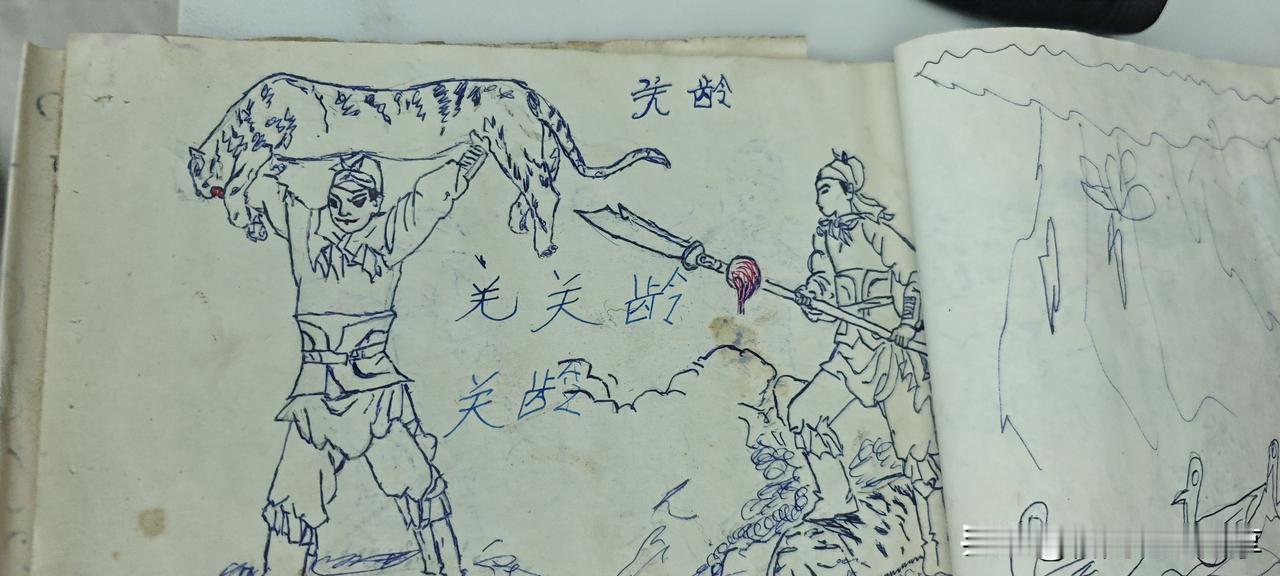 关龄
羌关龄
关龄